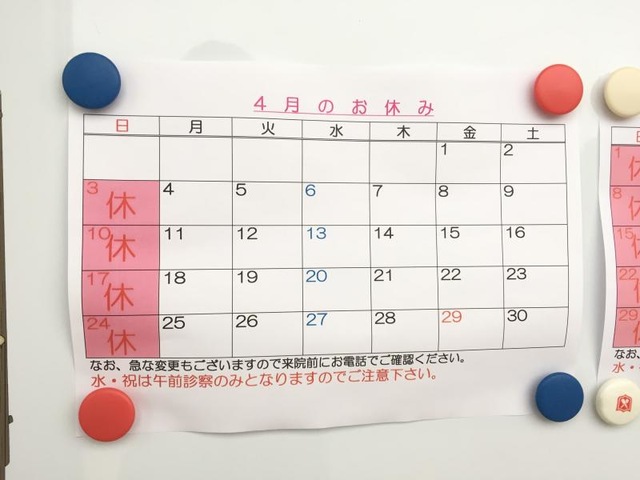 4月のお休み
日 月 火 水 木 金 土
1 2
3 休 4 5 6 7 8 9
10 休 11 12 13 14 15 16
17 休 18 19 20 21 22 23
24 休 25 26 27 28 29 30
なお、急な変更もございますので来院前にお電話でご確認ください。
水・祝は午前診察のみとなりますのでご注意下さい。
1
8
15
22
29
な
水・